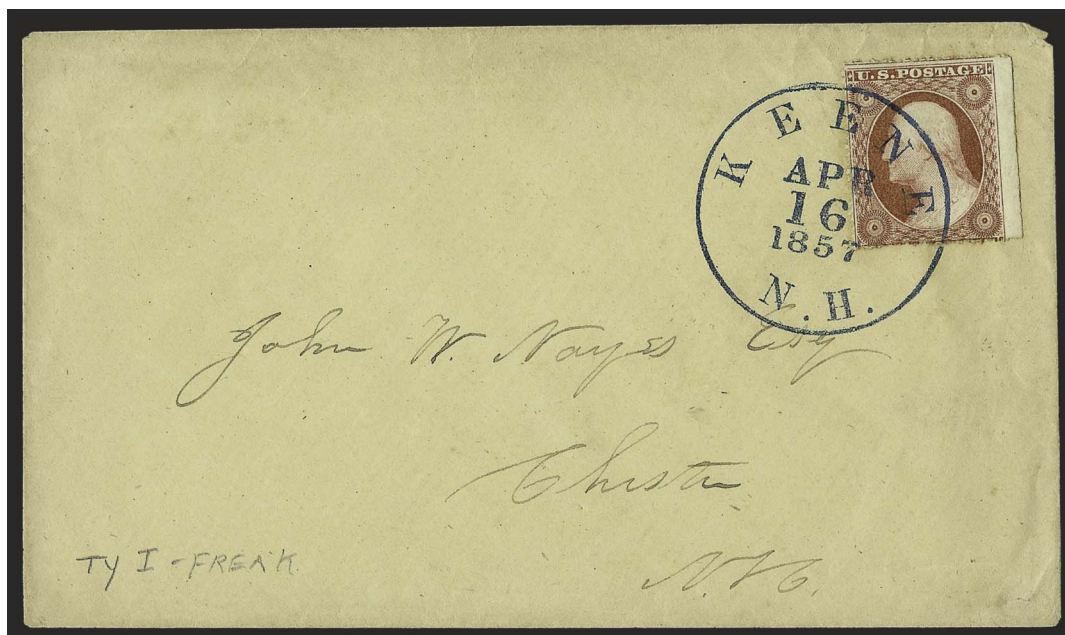 U.S. POSTAGE
KEENE
APR
16
1857
N.H.
John W. Noyes Esq
Chester
N.H.
TY I - FREAK